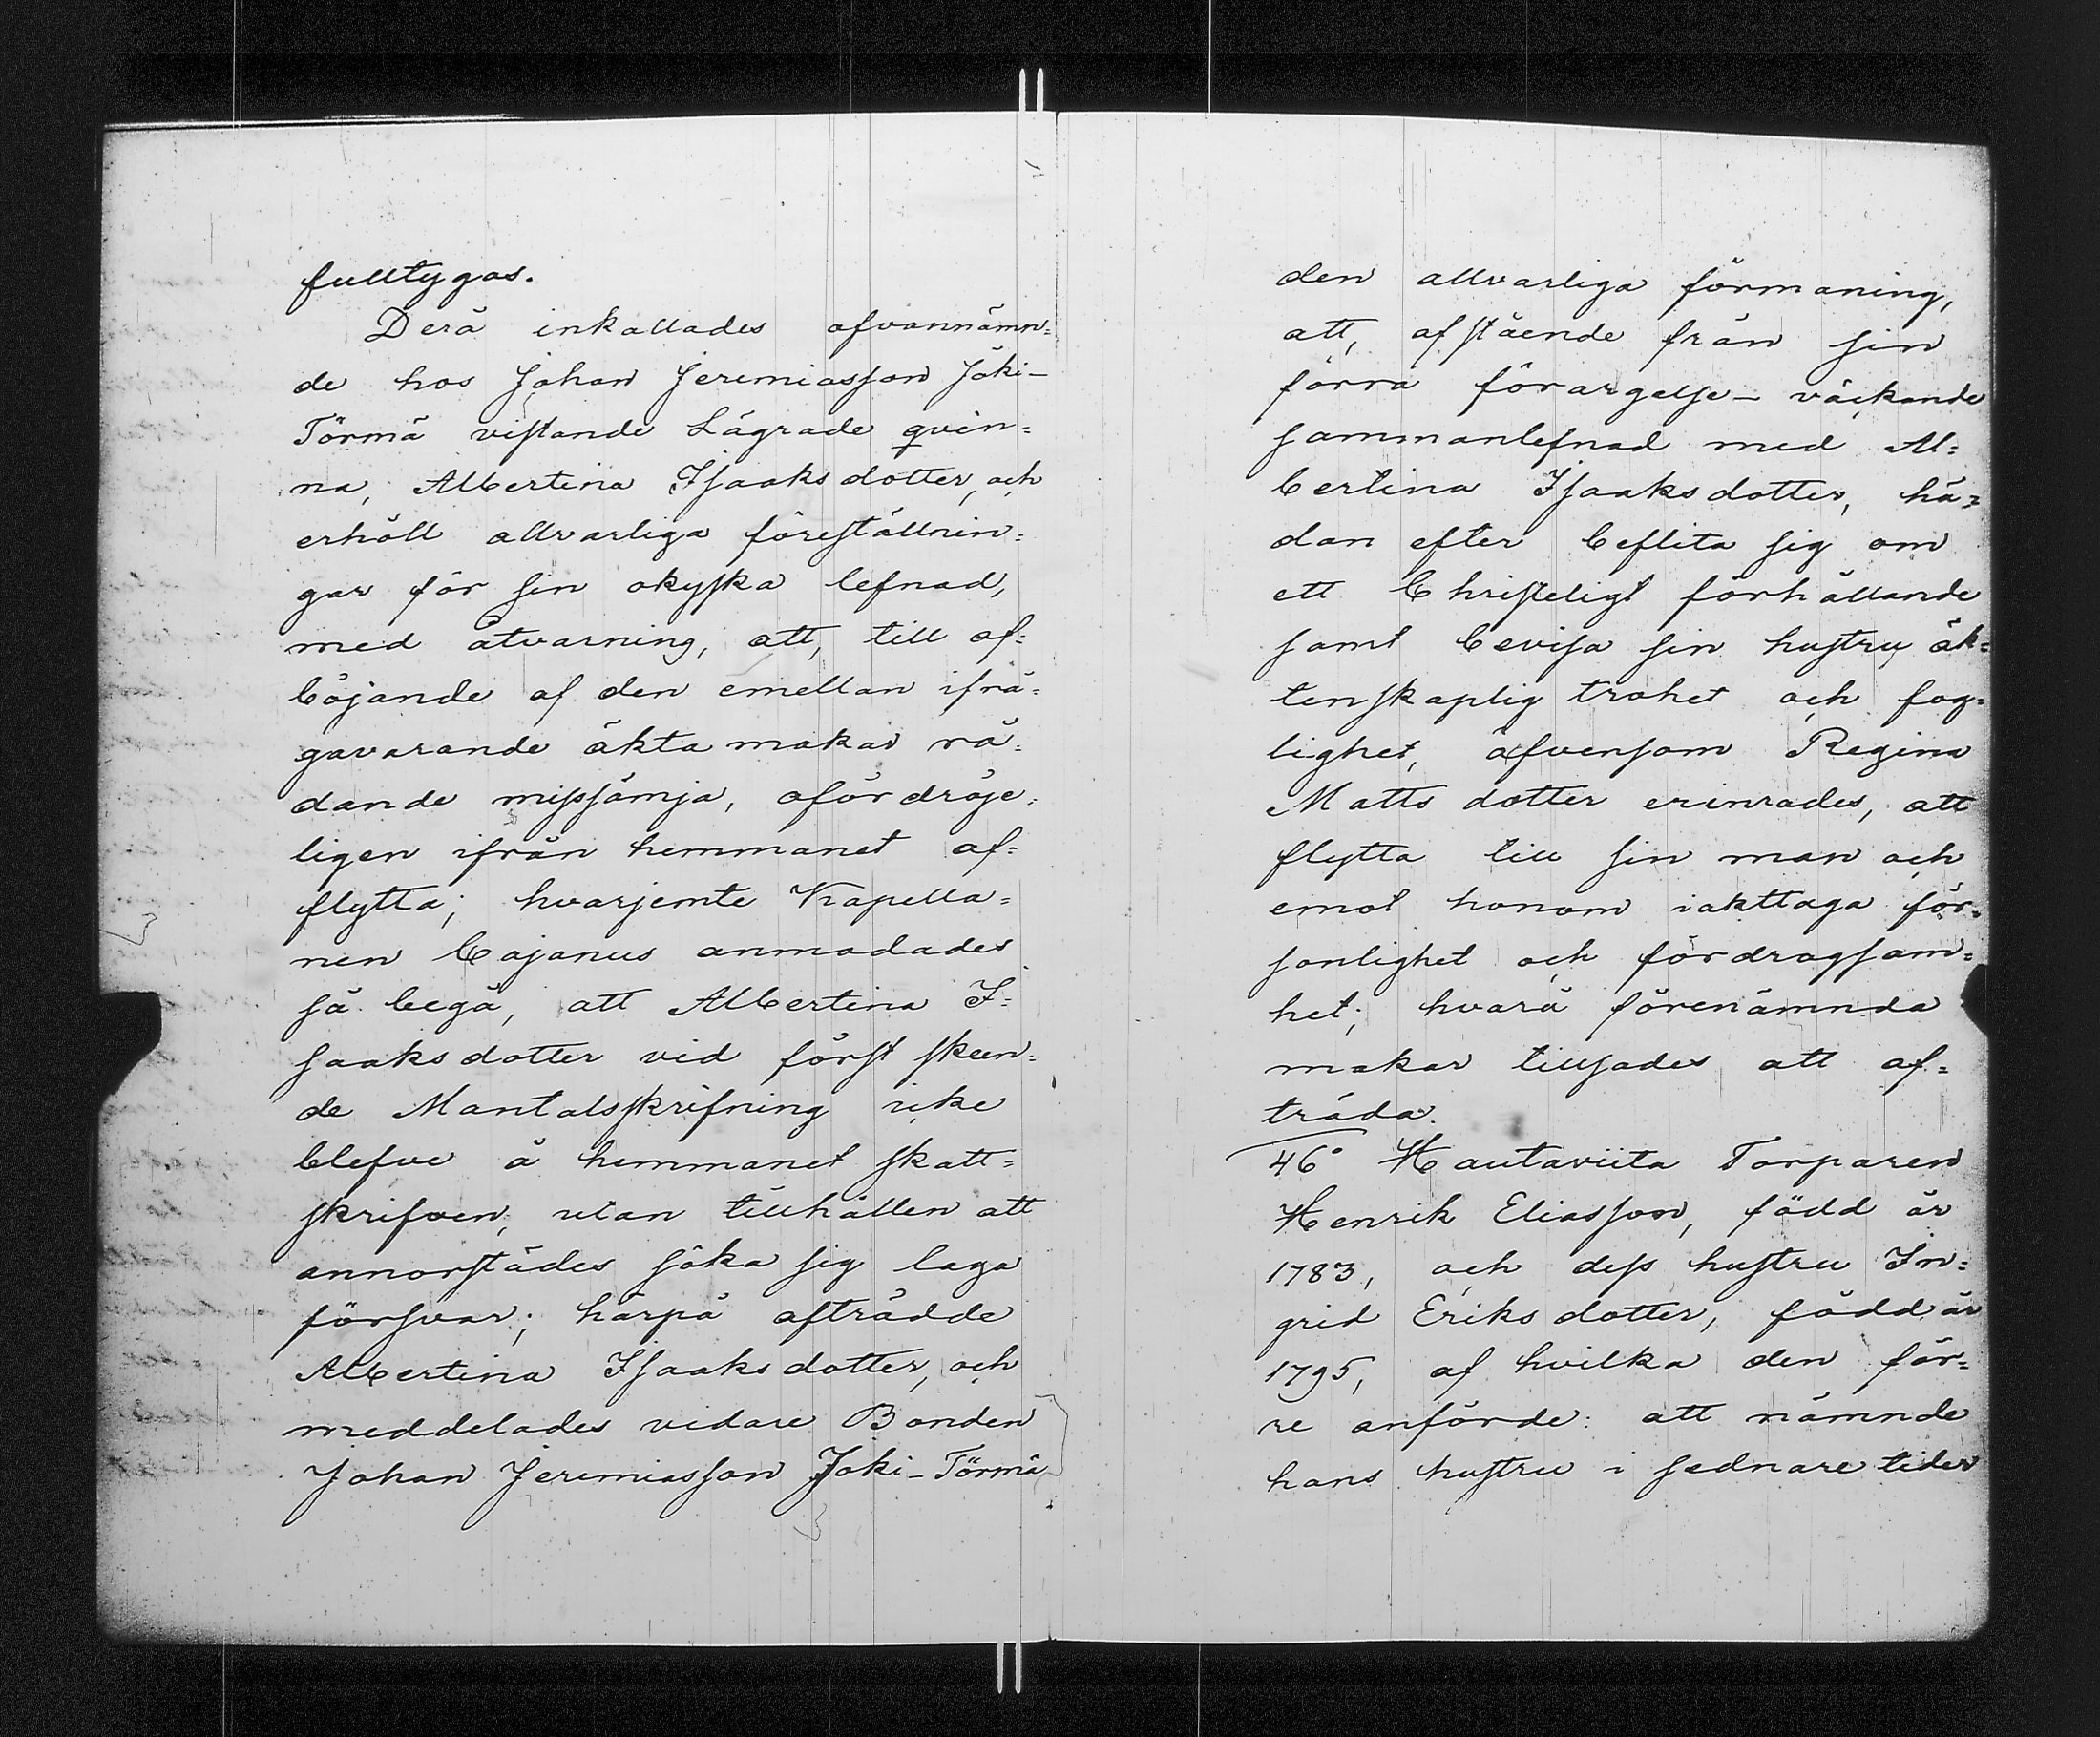 fulltygas.
Derå inkallades ofvannämn=
de hos Johan Jeremiasson Joki-
Törmä vistande Lägrade qvin=
na, Albertina Isaaksdotter, och
erhöll allvarliga föreställnin=
gar för sin okyska lefnad,
med åtvarning, att, till af=
böjande af den emellan ifrå=
gavarande äkta makar rå=
dande missämja, ofördröje=
ligen ifrån hemmanet af=
flytta; hvarjemte Kapella=
nen Cajanus anmodades
så begå, att Albertina I=
saaksdotter vid först skeen=
de Mantalsskrifning icke
blefve å hemmanet skatt=
skrifven, utan tillhållen att
annorstädes söka sig laga
försvar; härpå afträdde
Albertina Isaaksdotter, och
meddelades vidare Bonden
Johan Jeremiasson Joki-Törmä
den allvarliga förmaning,
att, afstående från sin
förra förargelse-väckande
sammanlefnad med Al=
bertina Isaaksdotter, hä=
dan efter beflita sig om
ett Christeligt förhållande
samt bevisa sin hustru äk=
tenskaplig trohet och fog=
lighet, äfvensom Regina
Matts dotter erinrades, att
flytta till sin man och
emot honom iakttaga för=
sonlighet och fördragsam=
het; hvarå förenämnda
makar tillsades att af=
träda.
46° Hautaviita Torparen
Henrik Eliasson, född år
1783, och dess hustru In=
grid Eriksdotter, född år
1795, af hvilka den för=
re anförde: att nämnde
hans hustru i sednare tider